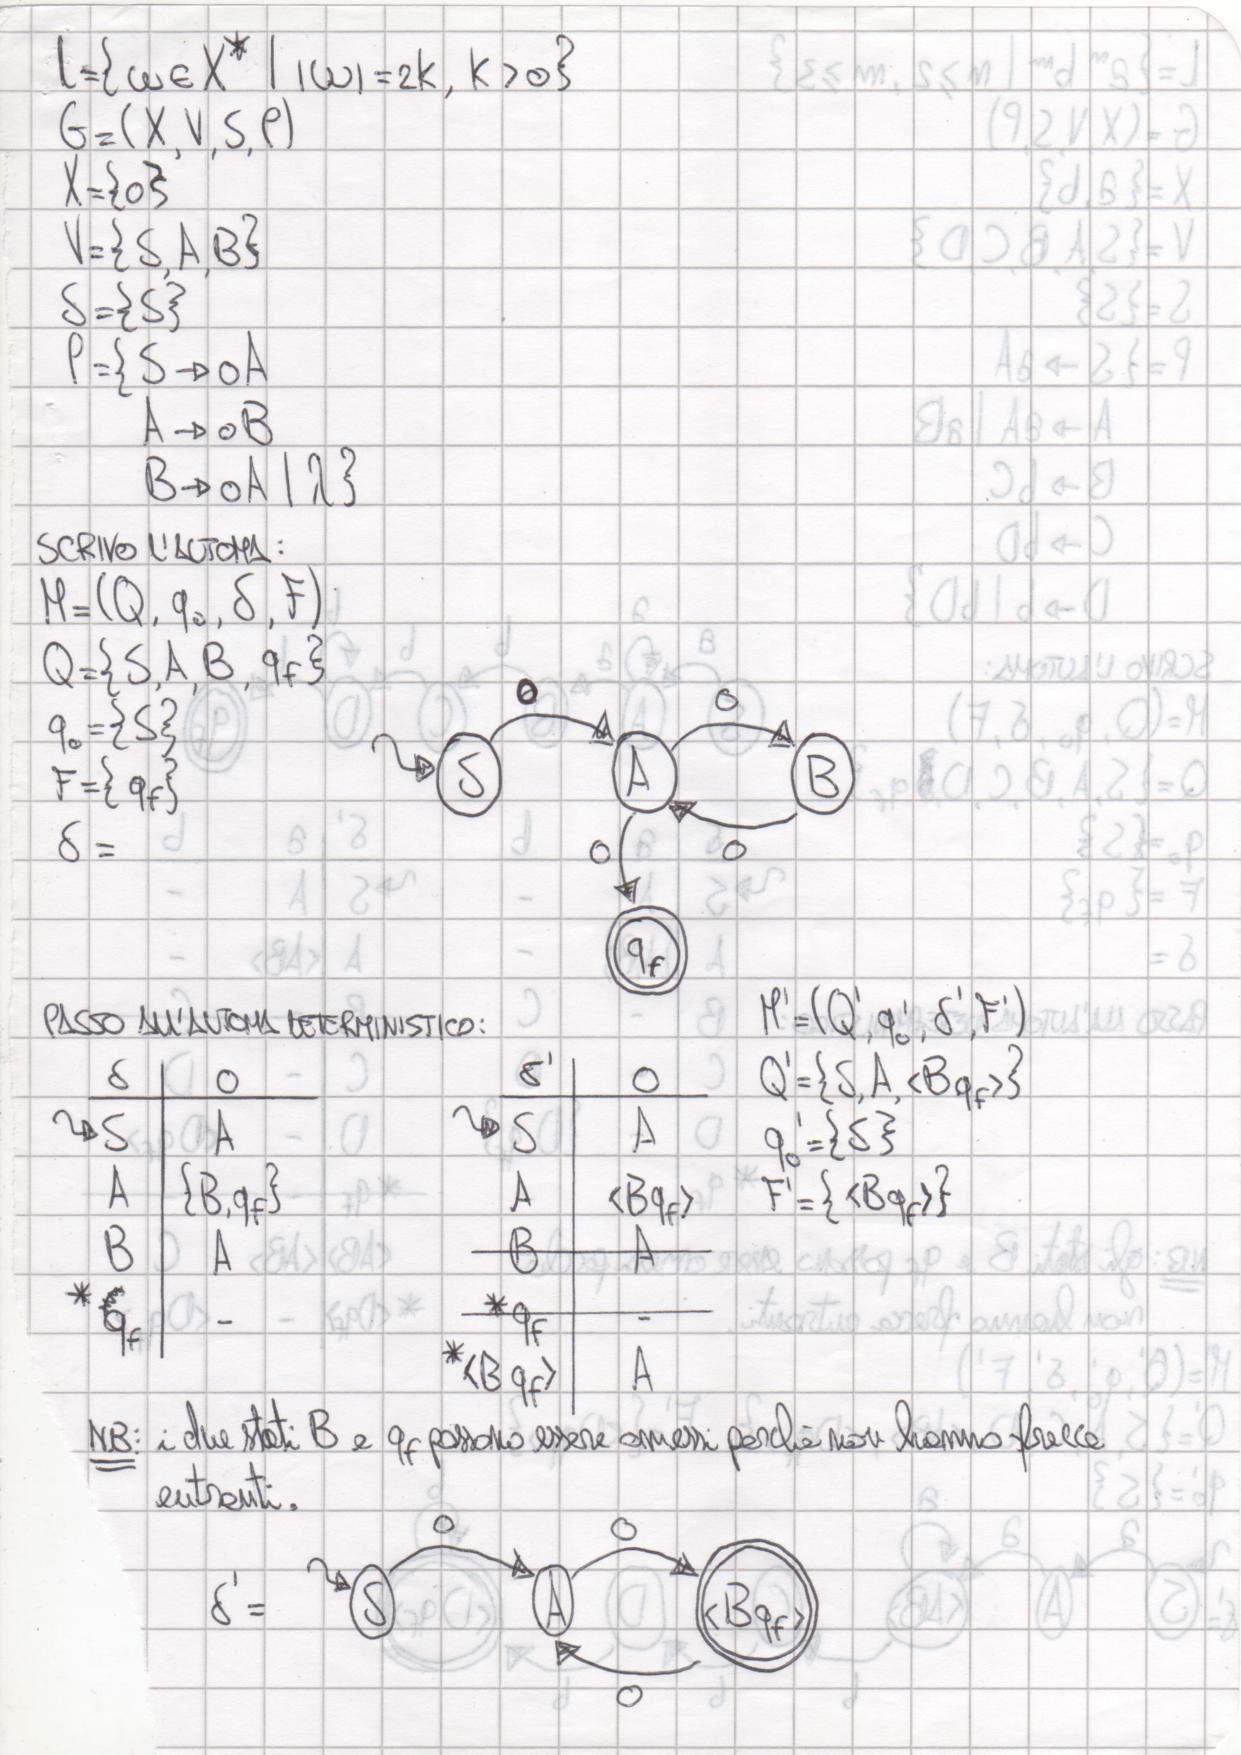 L={ω∈X* | |ω|=2K, K>0}
G=(X,V,S,P)
X={0}
V={S,A,B}
S={S}
P={S→0A
A→0B
B→0A | λ}
SCRIVO L'AUTOMA:
M=(Q, q₀, δ, F)
Q={S,A,B,q_f}
q₀={S}
F={q_f}
δ=
0 0
S A B
0 0
q_f
PASSO ALL'AUTOMA DETERMINISTICO:
δ 0
S A
A {B,q_f}
B A
* q_f -
δ' 0
S A
A <Bq_f>
B A
* q_f -
* <Bq_f> A
M'=(Q',q₀',δ',F')
Q'={S,A,<Bq_f>}
q₀'={S}
F'={<Bq_f>}
NB: i due stati B e q_f possono essere omessi perchè non hanno frecce
entranti.
0 0
δ'= S A <Bq_f>
0